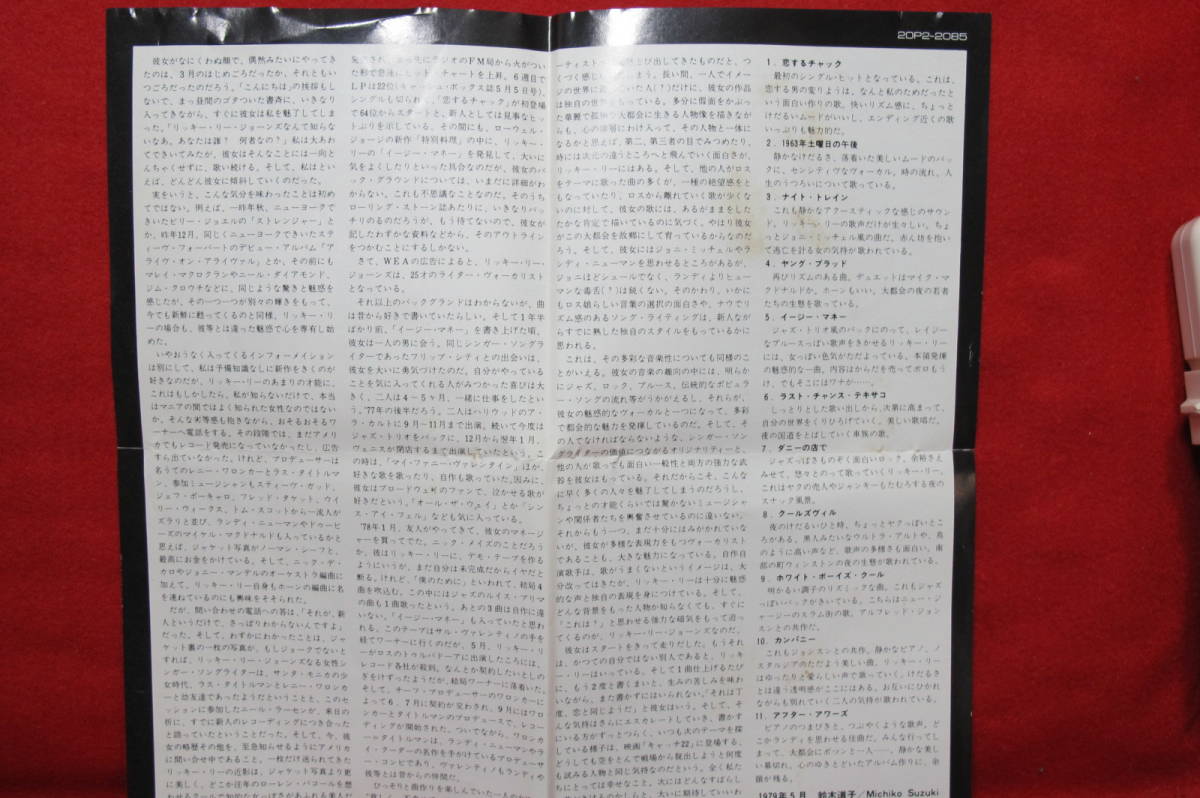 20P2-2085
彼女がなにくわぬ顔で、偶然みたいにやってき
たのは、3月のはじめごろだったか、それともい
つごろだったのだろう。「こんにちは」の挨拶もし
ないで、まっ昼間のゴタついた書斎に、いきなり
入ってきながら、すぐに彼女は私を魅了してしま
った。「リッキー・リー・ジョーンズなんて知らな
いなあ。あなたは誰？ 何者なの？」私は大あわ
てできいてみたが、彼女はそんなことには一向と
んちゃくせずに、歌い続ける。そして、私はとい
えば、どんどん彼女に傾斜していくのだった。
実をいうと、こんな気分を味わったことは初め
てではない。例えば、一昨年秋、ニューヨークで
きいたビリー・ジョエルの「ストレンジャー」と
か、昨年12月、同じくニューヨークできいたステ
ィーヴ・フォーバートのデビュー・アルバム「ア
ライヴ・オン・アライヴァル」とか、その前にも
マレイ・マクロクランやニール・ダイアモンド、
ジム・クロウチなどに、同じような驚きと魅惑を
感じたが、その一つ一つが別々の輝きをもって、
今でも新鮮に甦ってくるのと同様、リッキー・リ
ーの場合も、彼等とは違った魅惑で心を専有し始
めた。
いやおうなく入ってくるインフォーメイション
は別にして、私は予備知識なしに新作をきくのが
好きなのだが、リッキー・リーのあまりの才能に、
これはもしかしたら、私が知らないだけで、本当
はマニアの間ではよく知られた女性なのではない
か、そんな劣等感も抱きながら、おそるおそるワ
ーナーへ電話をする。その段階では、まだアメリ
カでもレコード発売になっていなかったし、広告
すら出ていなかった。けれど、プロデューサーは
名うてのレニー・ワロンカーとラス・タイトルマ
ン、参加ミュージシャンもスティーヴ・ガッド、
ジェフ・ポーカロ、フレッド・タケット、ウイ
リー・ウィークス、トム・スコットから一流人が
ズラリと並び、ランディ・ニューマンやドゥービ
ーズのマイケル・マクドナルドも入っているかと
思えば、ジャケット写真がノーマン・シーフと、
最高にお金をかけている。そして、ニック・デ・
カロやジョニー・マンデルのオーケストラ編曲に
加えて、リッキー・リー自身もホーンの編曲に名
を連ねているのにも興味をそそられた。
だが、問い合わせの電話への答は、「それが、新
人というだけで、さっぱりわからないんですよ」
だった。そして、わずかにわかったことは、ジャ
ケット裏の一枚の写真が、もしジョークでないと
すれば、リッキー・リー・ジョーンズなる女性シ
ンガー・ソングライターは、サンタ・モニカの少
女時代、ラス・タイトルマンとレニー・ワロンカー
と幼友達であったようだということと、このセ
ッションに参加したニール・ラーセンが、来日の
折に、すでに新人のレコーディングにつき合った
と語っていたということだった。そして、今、彼
女の略歴その他を、至急知らせるようにアメリカ
に問い合せ中であること。一枚だけ送られてきた
リッキー・リーの近影は、ジャケット写真より更
に美しく、どこか往年のローレン・バコールを想
シングルも切られて、「恋するチャック」が初登場
で64位からスタートと、新人としては見事なヒッ
トぶりを示している。その間にも、ローウェル・
ジョージの新作「特別料理」の中に、リッキー・
リーの「イージー・マネー」を発見して、大いに
気をよくしたりといった具合なのだが、彼女のバ
ック・グラウンドについては、いまだに詳細がわ
からない。これも不思議なことなのだ。そのうち
ローリング・ストーン誌あたりに、いきなりバッ
チリのるのだろうが、もう待てないので、彼女が
記したわずかな資料などから、そのアウトライン
をつかむことにするしかない。
さて、WEAの広告によると、リッキー・リー・
ジョーンズは、25才のライター・ヴォーカリスト
となっている。
それ以上のバックグランドはわからないが、曲
は昔から好きで書いていたらしい。そして1年半
ばかり前、「イージー・マネー」を書き上げた頃、
彼女は一人の男に会う。同じシンガー・ソングラ
イターであったフリップ・シティとの出会いは、
彼女を大いに勇気づけたのだ。自分がやっている
ことを気に入ってくれる人がみつかった喜びは大
きく、二人は4～5ヶ月、一緒に仕事をしたとい
う。'77年の後半だろう。二人はハリウッドのア・
ラ・カルトに9月～11月まで出演。続いて今度は
ジャズ・トリオをバックに、12月から翌年1月、
ヴェニスが閉店するまで出演していたという。こ
の時は、「マイ・ファニー・ヴァレンタイン」ほか、
好きな歌を歌ったり、自作も歌っていた。因みに、
彼女はブロードウェイのファンで、泣かせる歌が
好きだという。「オール・ザ・ウェイ」とか「シン
ス・アイ・フェル」なども気に入っている。
'78年1月、友人がやってきて、彼女のマネージ
ャーを買ってでた。ニック・メイズのことだろう
か。彼はリッキー・リーに、デモ・テープを作る
ようにいうが、まだ自分は未完成だからイヤだと
断る。けれど、「僕のために」といわれて、結局4
曲を吹込む。この中にはジャズのルイス・アリマ
の曲も1曲歌ったという。あとの3曲は自作に違
いない。「イージー・マネー」も入っていたと思わ
れる。このテープはサル・ヴァレンティノの手を
経てワーナーに行くのだが、5月、リッキー・リ
ーがロスのトゥルバドーアに出演したころには、
レコード各社が殺到。なんとか契約したいとしの
ぎをけずったようだが、結局ワーナーに落着いた。
そして、チーフ・プロデューサーのワロンカーに
よって6、7月に契約が交わされ、9月にはワロ
ンカーとタイトルマンのプロデュースで、レコー
ディングが開始された。ついでながら、ワロンカ
ー＝タイトルマンは、ランディ・ニューマンやラ
イ・クーダーの名作を手がけているプロデューサ
ー・コンビであり、ヴァレンティノもランディや
彼等とは昔からの仲間だ。
つくづく感じいってしまう。長い間、一人でイメー
は独自の世界をもっている。多分に仮面をかぶっ
た華麗で孤独な大都会に生きる人物像を描きなが
らも、心の深層にわけ入って、その人物と一体に
なるかと思えば、第二、第三者の目でみつめたり、
時には次元の違うところへと飛んでいく面白さが、
リッキー・リーにはある。そして、他の人がロス
をテーマに歌った曲の多くが、一種の絶望感をと
もなっていたり、ロスから離れていく歌が少くな
いのに対して、彼女の歌には、あるがままをした
たかな肯定で描いているのに気づく。やはり彼女
がこの大都会を故郷にして育っているからなのだ
ろう。そして、彼女にはジョニ・ミッチェルやラ
ンディ・ニューマンを思わせるところがあるが、
ジョニほどシュールでなく、ランディよりヒュー
マンな毒舌(？)は鋭くない。そのかわり、いかに
もロス娘らしい言葉の選択の面白さや、ナウでリ
ズム感のあるソング・ライティングは、新人なが
らすでに熟した独自のスタイルをもっているかに
思われる。
これは、その多彩な音楽性についても同様のこ
とがいえる。彼女の音楽の趣向の中には、明らか
にジャズ、ロック、ブルース、伝統的なポピュラ
ー・ソングの流れ等がうかがえるし、それらが、
彼女の魅惑的なヴォーカルと一つになって、多彩
で都会的な魅力を発揮しているのだ。そして、そ
の人でなければならないような、シンガー・ソン
グライターの価値につながるオリジナリティーと、
他の人が歌っても面白い一般性と両方の強力な武
鈴を彼女はもっている。それだからこそ、こんな
に早く多くの人々を魅了してしまうのだろうし、
ちょっとの才能くらいでは驚かないミュージシャ
ンや関係者たちを興奮させているのに違いない。
それからもう一つ、まだ十分にはみがかれていな
いが、彼女が多様な表現力をもつヴォーカリスト
であることも、大きな魅力になっている。自作自
演歌手は、歌がうまくないというイメージは、大
分改ってはきたが、リッキー・リーは十分に魅惑
的な声と独自の表現を身につけている。そして、
どんな背景をもった人物か知らなくても、すぐに
「これは？」と思わせる強力な磁気をもって迫っ
てくるのが、リッキー・リー・ジョーンズなのだ。
彼女はスタートをきって走りだした。もうそれ
は、かつての自分ではない別人であると、リッキ
ー・リーはいっている。そして1曲仕上げるたび
に、もう2度と書くまいと、生みの苦しみを味わ
いながら、また書かずにはいられない。「それは丁
度、恋と同じようだ」と彼女はいう。そして、そ
んな気持はさらにエスカレートしていき、書かず
にいる方がずっとつらく、いつも次のテーマを探
している様子は、映画「キャッチ22」に登場する、
どうしても空をとんで戦場から脱出しようと何度
も試みる人物と同じ気持なのだという。全く私た
ちにとっては幸せなこと、次にはどんなすばらし
1. 恋するチャック
最初のシングル・ヒットとなっている。これは、
恋する男の変りようは、なんと私のためだったと
いう面白い作りの歌。快いリズム感に、ちょっと
けだるいムードがいいし、エンディング近くの歌
いっぷりも魅力的だ。
2. 1963年土曜日の午後
静かなけだるさ、落着いた美しいムードのバッ
クに、センシティヴなヴォーカル。時の流れ、人
生のうつろいについて歌っている。
3. ナイト・トレイン
これも静かなアクースティックな感じのサウン
ド。リッキー・リーの歌声だけが生々しい。ちょ
っとジョニ・ミッチェル風の曲だ。赤ん坊を抱い
て逃亡を計る女の気持が歌われている。
4. ヤング・ブラッド
再びリズムのある曲。デュエットはマイク・マ
クドナルドか。ホーンもいい。大都会の夜の若者
たちの生態を歌っている。
5. イージー・マネー
ジャズ・トリオ風のバックにのって、レイジー
なブルースっぽい歌声をきかせるリッキー・リー
には、女っぽい色気がただよっている。本領発揮
の魅惑的な一曲。内容はからだを売ってボロもう
け、でもそこにはワナが……。
6. ラスト・チャンス・テキサコ
しっとりとした歌い出しから、次第に高まって、
自分の世界をくりひろげていく。美しい歌唱だ。
夜の国道をとばしていく車族の歌。
7. ダニーの店で
ジャズっぽさものぞく面白いロック。余裕さえ
みせて、悠々とのって歌っていくリッキー・リー。
これはヤクの売人やジャンキーたむろする夜の
スナック風景。
8. クールズヴィル
夜のけだるいひと時、ちょっとヤクっぽいとこ
ろがある。黒人みたいなウルトラ・アルトや、鳥
のように高い声など、歌声の多様さも面白い。南
部の町ウィンストンの夜の生態が歌われている。
9. ホワイト・ボーイズ・クール
明かるい調子のリズミックな曲。これもジャズ
っぽいバックがきいている。こちらはニュー・ジ
ャージーのスラム街の歌。アルフレッド・ジョン
スンとの共作だ。
10. カンパニー
これもジョンスンとの共作。静かなピアノ、ノ
スタルジアのただよう美しい曲。リッキー・リー
はゆったりと愛らしい声で歌っていく。けだるさ
とは違う透明感がここにはある。お互いにひかれ
ながらも別れていく二人の気持が歌われている。
11. アフター・アワーズ
ピアノのつまびきと、つぶやくような歌声。ど
こかランディを思わせる佳曲だ。みんな行ってし
まって、大都会にポツンと一人――。静かな美し
い幕切れ、心のゆきとどいたアルバム作りに、余
韻が残る。
1979年5月 鈴木道子/Michiko Suzuki